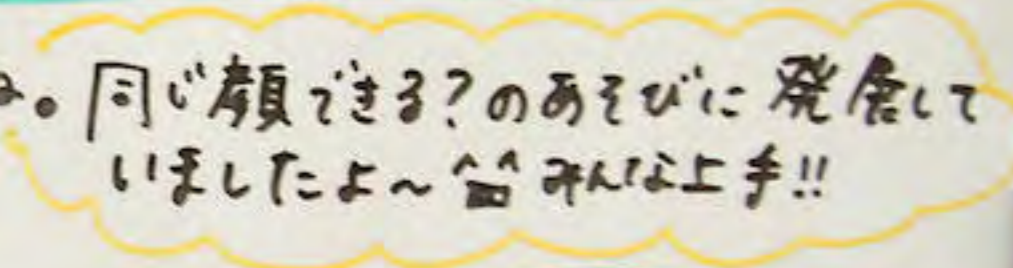 。同じ顔できる?のあそびに発展して
いましたよ~^^みんな上手!!